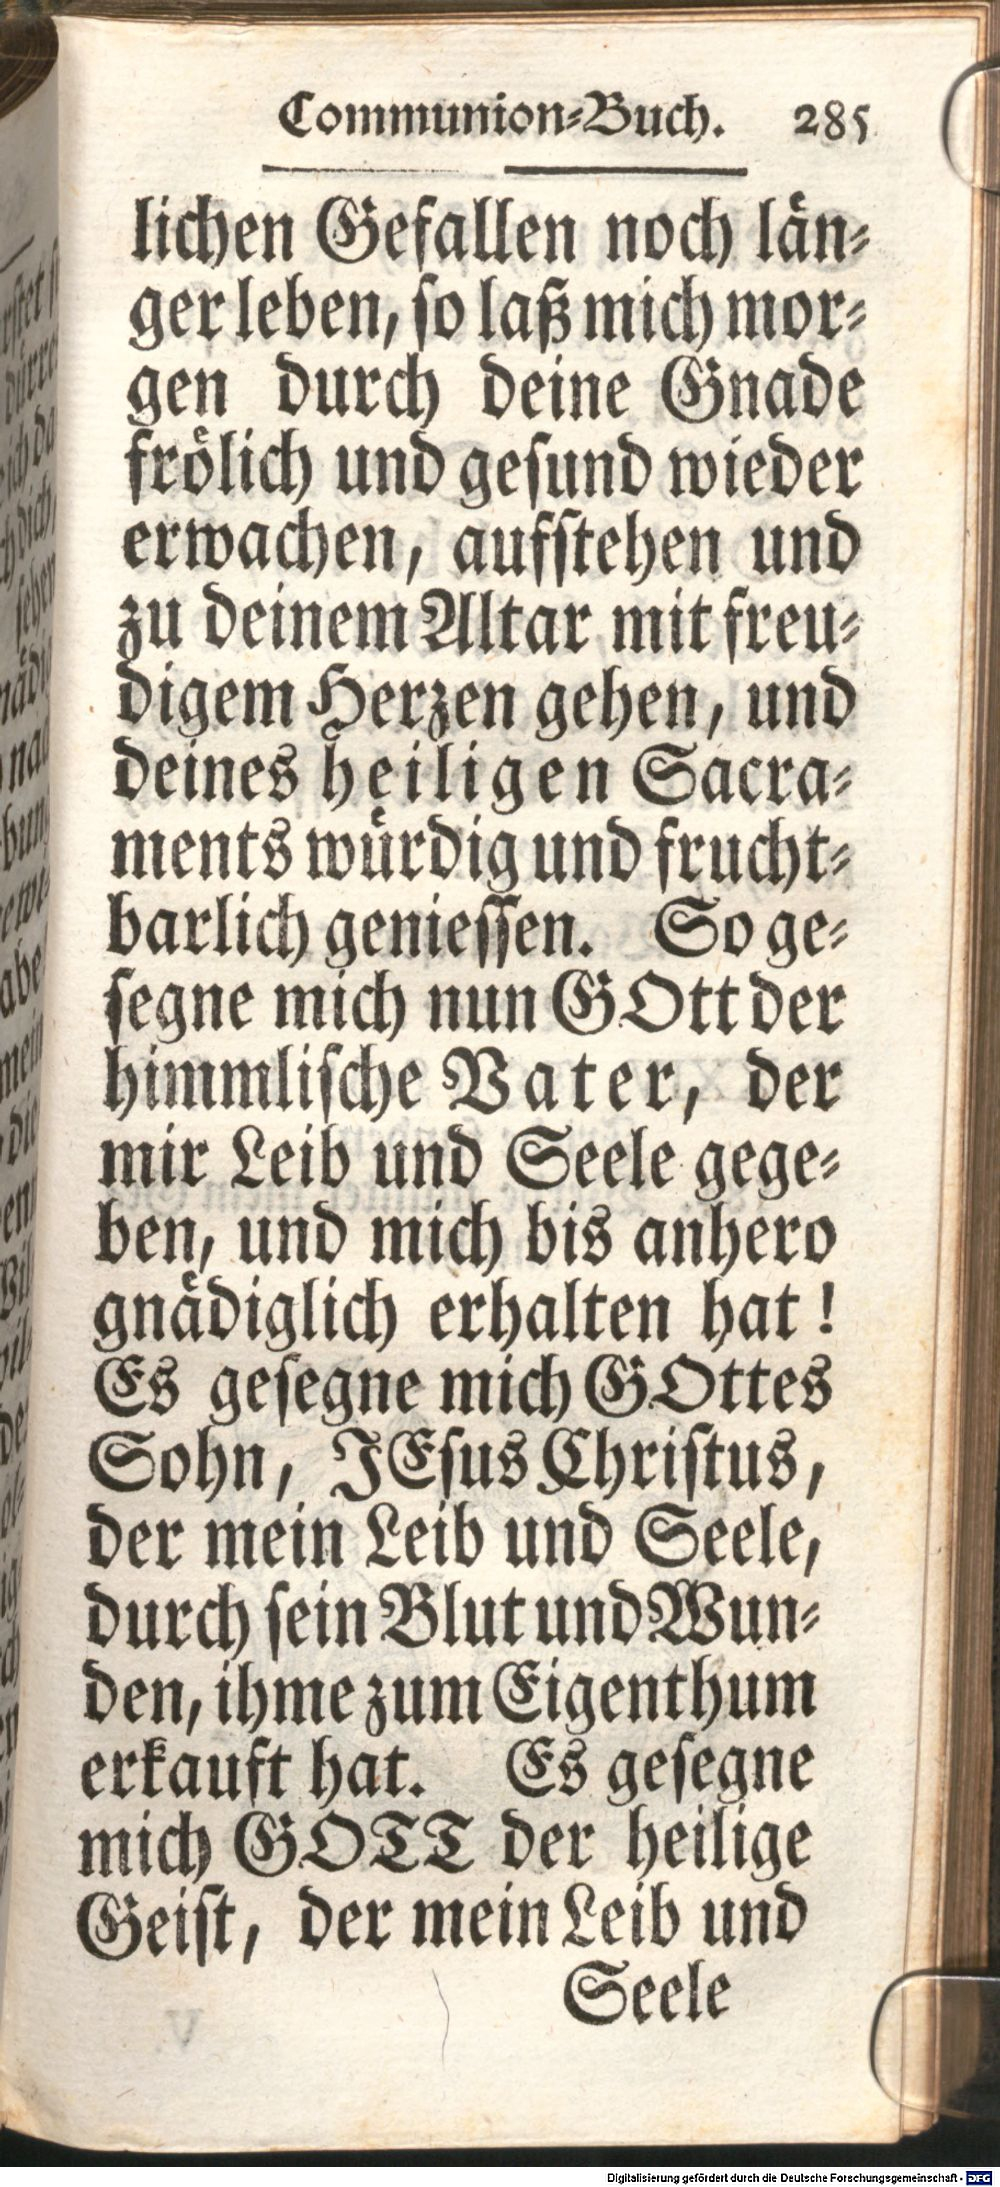 Communion-Buch. 285
lichen Gefallen noch län-
ger leben, ſo laß mich mor-
gen durch deine Gnade
frölich und geſund wieder
erwachen, aufſtehen und
zu deinem Altar mit freu-
digem Herzen gehen, und
deines heiligen Sacra-
ments würdig und frucht-
barlich genieſſen. So ge-
ſegne mich nun GOtt der
himmliſche Vater, der
mir Leib und Seele gege-
ben, und mich bis anhero
gnädiglich erhalten hat!
Es geſegne mich GOttes
Sohn, JEſus Chriſtus,
der mein Leib und Seele,
durch ſein Blut und Wun-
den, ihme zum Eigenthum
erkauft hat. Es geſegne
mich GOTT der heilige
Geiſt, der mein Leib und
Seele
Digitalisierung gefördert durch die Deutsche Forschungsgemeinschaft - DFG